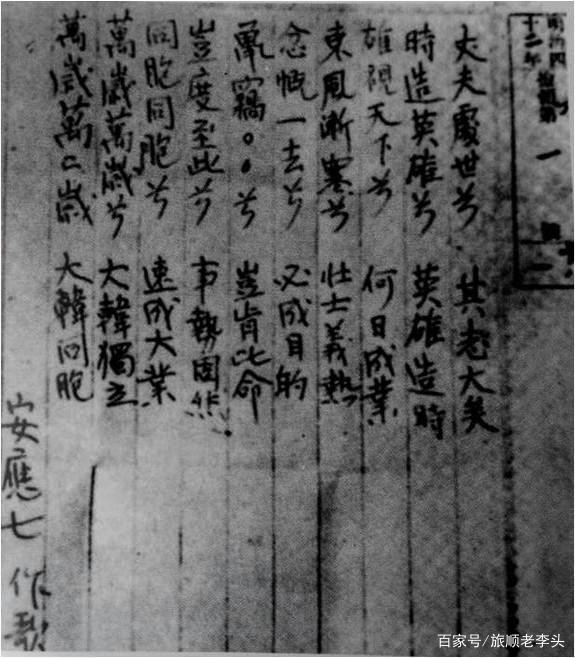 明治四十二年
第一
丈夫處世兮 其志大矣
時造英雄兮 英雄造時
雄視天下兮 何日成業
東風漸寒兮 壯士義熱
忿慨一去兮 必成目的
鼠竊○○兮 豈肯比命
豈度至此兮 事勢固然
同胞同胞兮 速成大業
萬歲萬歲兮 大韓獨立
萬歲萬々歲 大韓同胞
安應七 作歌
百家号/旅顺老李头